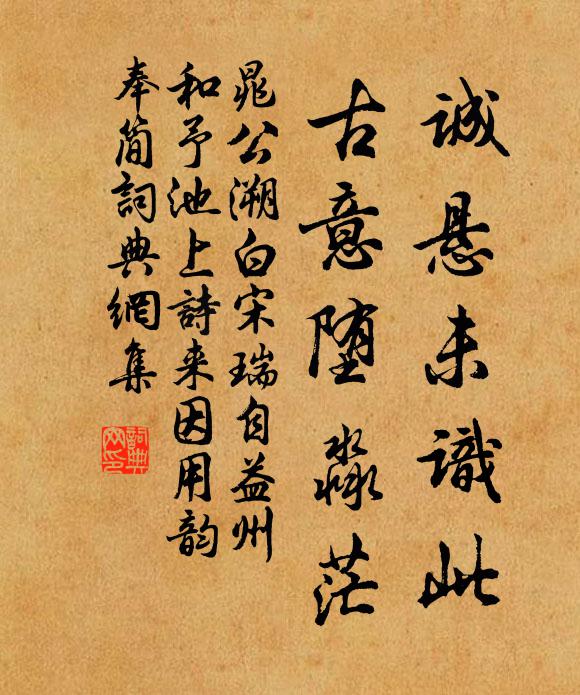 誠悬未識此
古意堕淼茫
晁公溯白宋瑞自益州
和予池上詩来因用韵
奉简詞典網集
詞典
网印